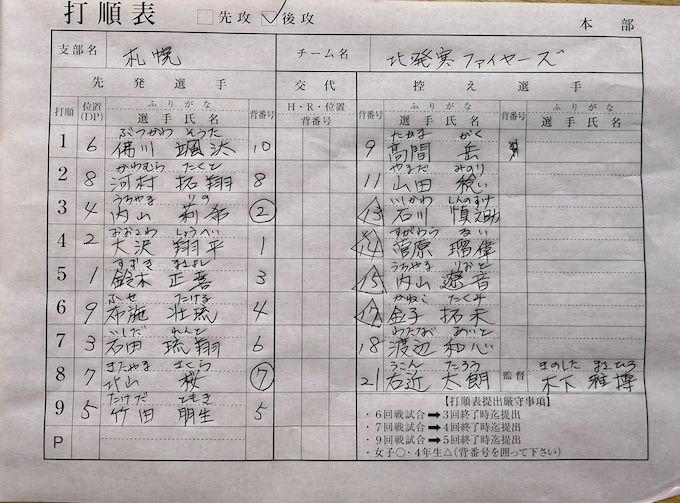 打順表 □先攻 ☑後攻 本部
支部名 札幌 チーム名 北発寒ファイヤーズ
先発選手 交代 控え選手
打順 位置(DP) ふりがな 選手氏名 背番号 H・R・位置 背番号 背番号 ふりがな 選手氏名 背番号 ふりがな 選手氏名
ぶつかわ そうた たかま がく
1 6 佛川 颯汰 10 9 高間 岳
かわむら たくと やまだ みのり
2 8 河村 拓翔 8 11 山田 稔
うちやま りの いしかわ しんのすけ
3 4 内山 莉希 2 13 石川 慎之助
おおさわ しょうへい すがわら るい
4 2 大沢 翔平 1 14 菅原 瑠偉
すずき まさよし うちやま りおと
5 1 鈴木 正吾 3 15 内山 遼音
ふせ たける かねこ たくみ
6 9 布施 壮琉 4 17 金子 拓未
いしだ れんと わたなべ あいと
7 3 石田 琉翔 6 18 渡辺 和心
きたやま さくら うこん たろう きのした まさひろ
8 7 北山 桜 7 21 右近 太朗 監督 木下 雅博
たけだ ともき
9 5 竹田 朋生 5
P
【打順表提出厳守事項】
・6回戦試合➡3回終了時迄提出
・7回戦試合➡4回終了時迄提出
・9回戦試合➡5回終了時迄提出
・女子○・4年生△(背番号を囲って下さい)